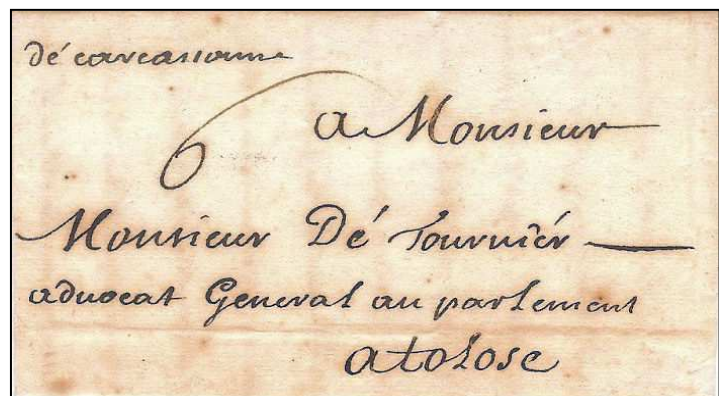 dé carcassonne
6
a Monsieur
Monsieur Dé Tournièr
advocat General au parlement
a tolose